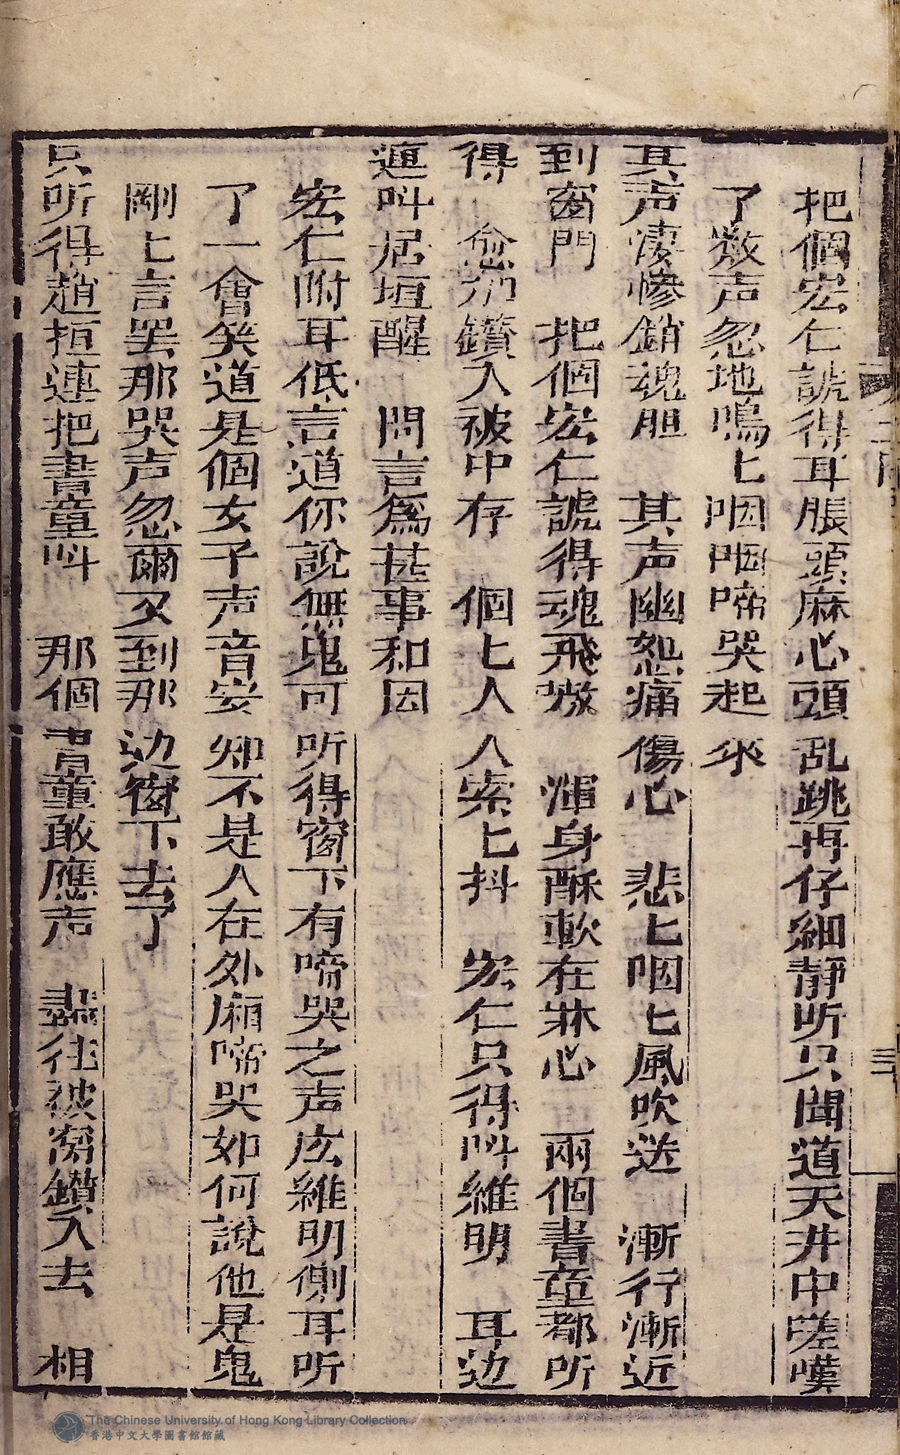 把個宏仁諕得耳脹頭麻心頭乱跳再仔細靜听只聞道天井中嗟嘆
了数声忽地嗚匕咽咽啼哭起來
其声凄慘銷魂胆 其声幽怨痛傷心 悲匕咽匕風吹送 漸行漸近
到窗門 把個宏仁諕得魂飛散 渾身酥軟在牀心 兩個書童都听
得 愈加鑽入被中存 個匕人人索匕抖 宏仁只得呌維明 耳边
連呌居垣醒 問言爲甚事和因
宏仁附耳低言道你說無鬼可听得窗下有啼哭之声庅維明側耳听
了一會笑道是個女子声音安知不是人在外廂啼哭如何說他是鬼
剛匕言罢那哭声忽爾又到那边窗下去了
只听得趙垣連把書童呌 那個書童敢應声 盡往被窩鑽入去 相
三
The Chinese University of Hong Kong Library Collection
香港中文大學圖書館館藏